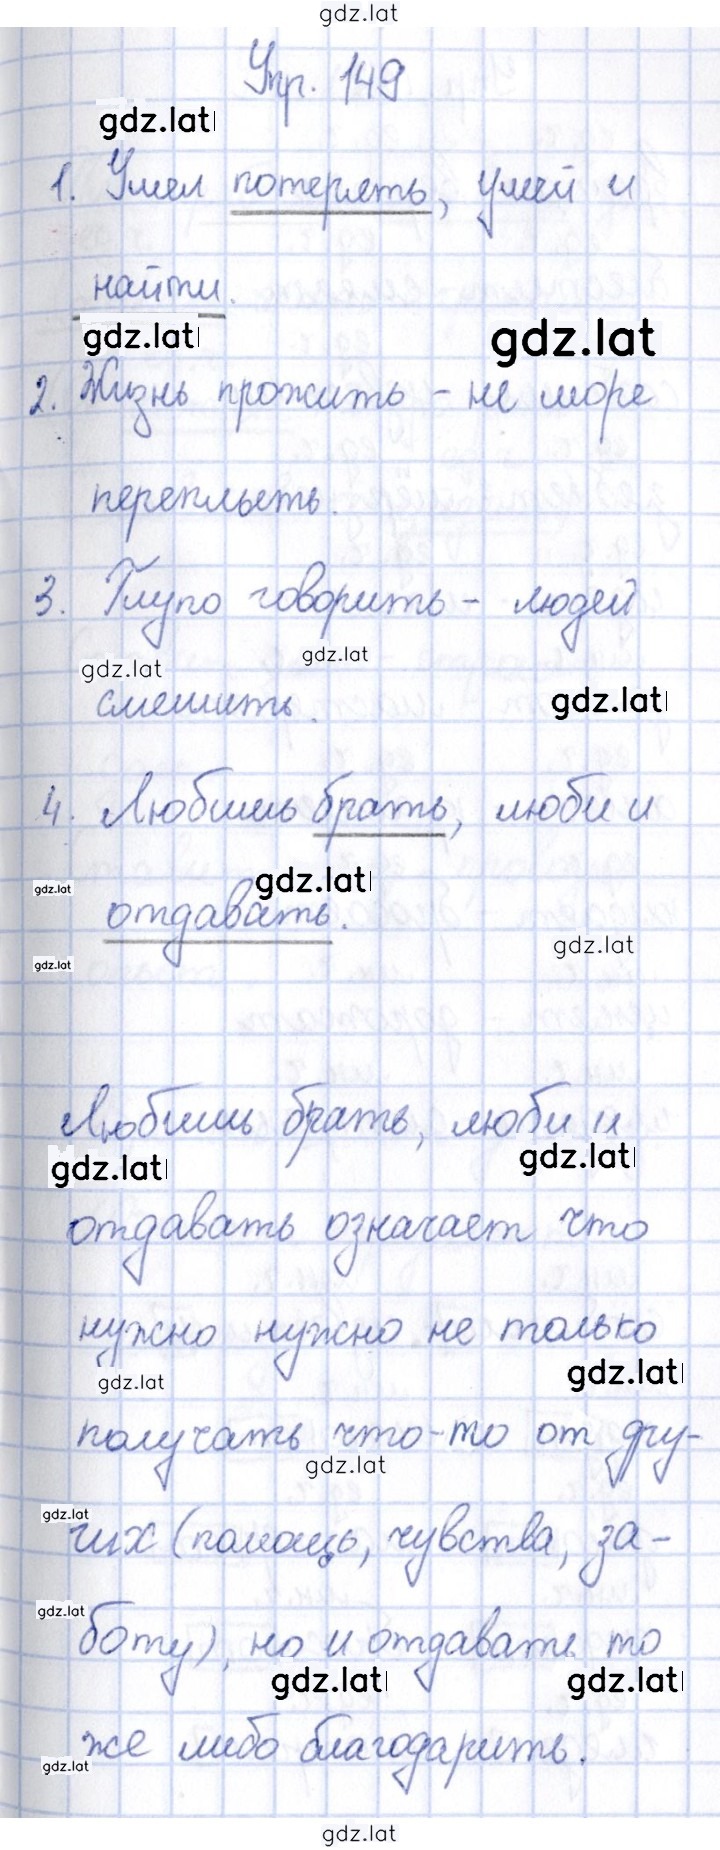 gdz.lat
Упр. 149
gdz.lat
1. Умел потерять, умей и
найти.
gdz.lat gdz.lat
2. Жизнь прожить - не море
переплыть.
3. Глупо говорить - людей
gdz.lat gdz.lat
смешить. gdz.lat
4. Любишь брать, люби и
gdz.lat gdz.lat
отдавать.
gdz.lat gdz.lat
Любишь брать, люби и
gdz.lat gdz.lat
отдавать означает что
нужно нужно не только
gdz.lat gdz.lat
получать что-то от дру-
gdz.lat
gdz.lat
гих (помощь, чувства, за-
gdz.lat
боту), но и отдавать то
gdz.lat gdz.lat
же либо благодарить.
gdz.lat
gdz.lat